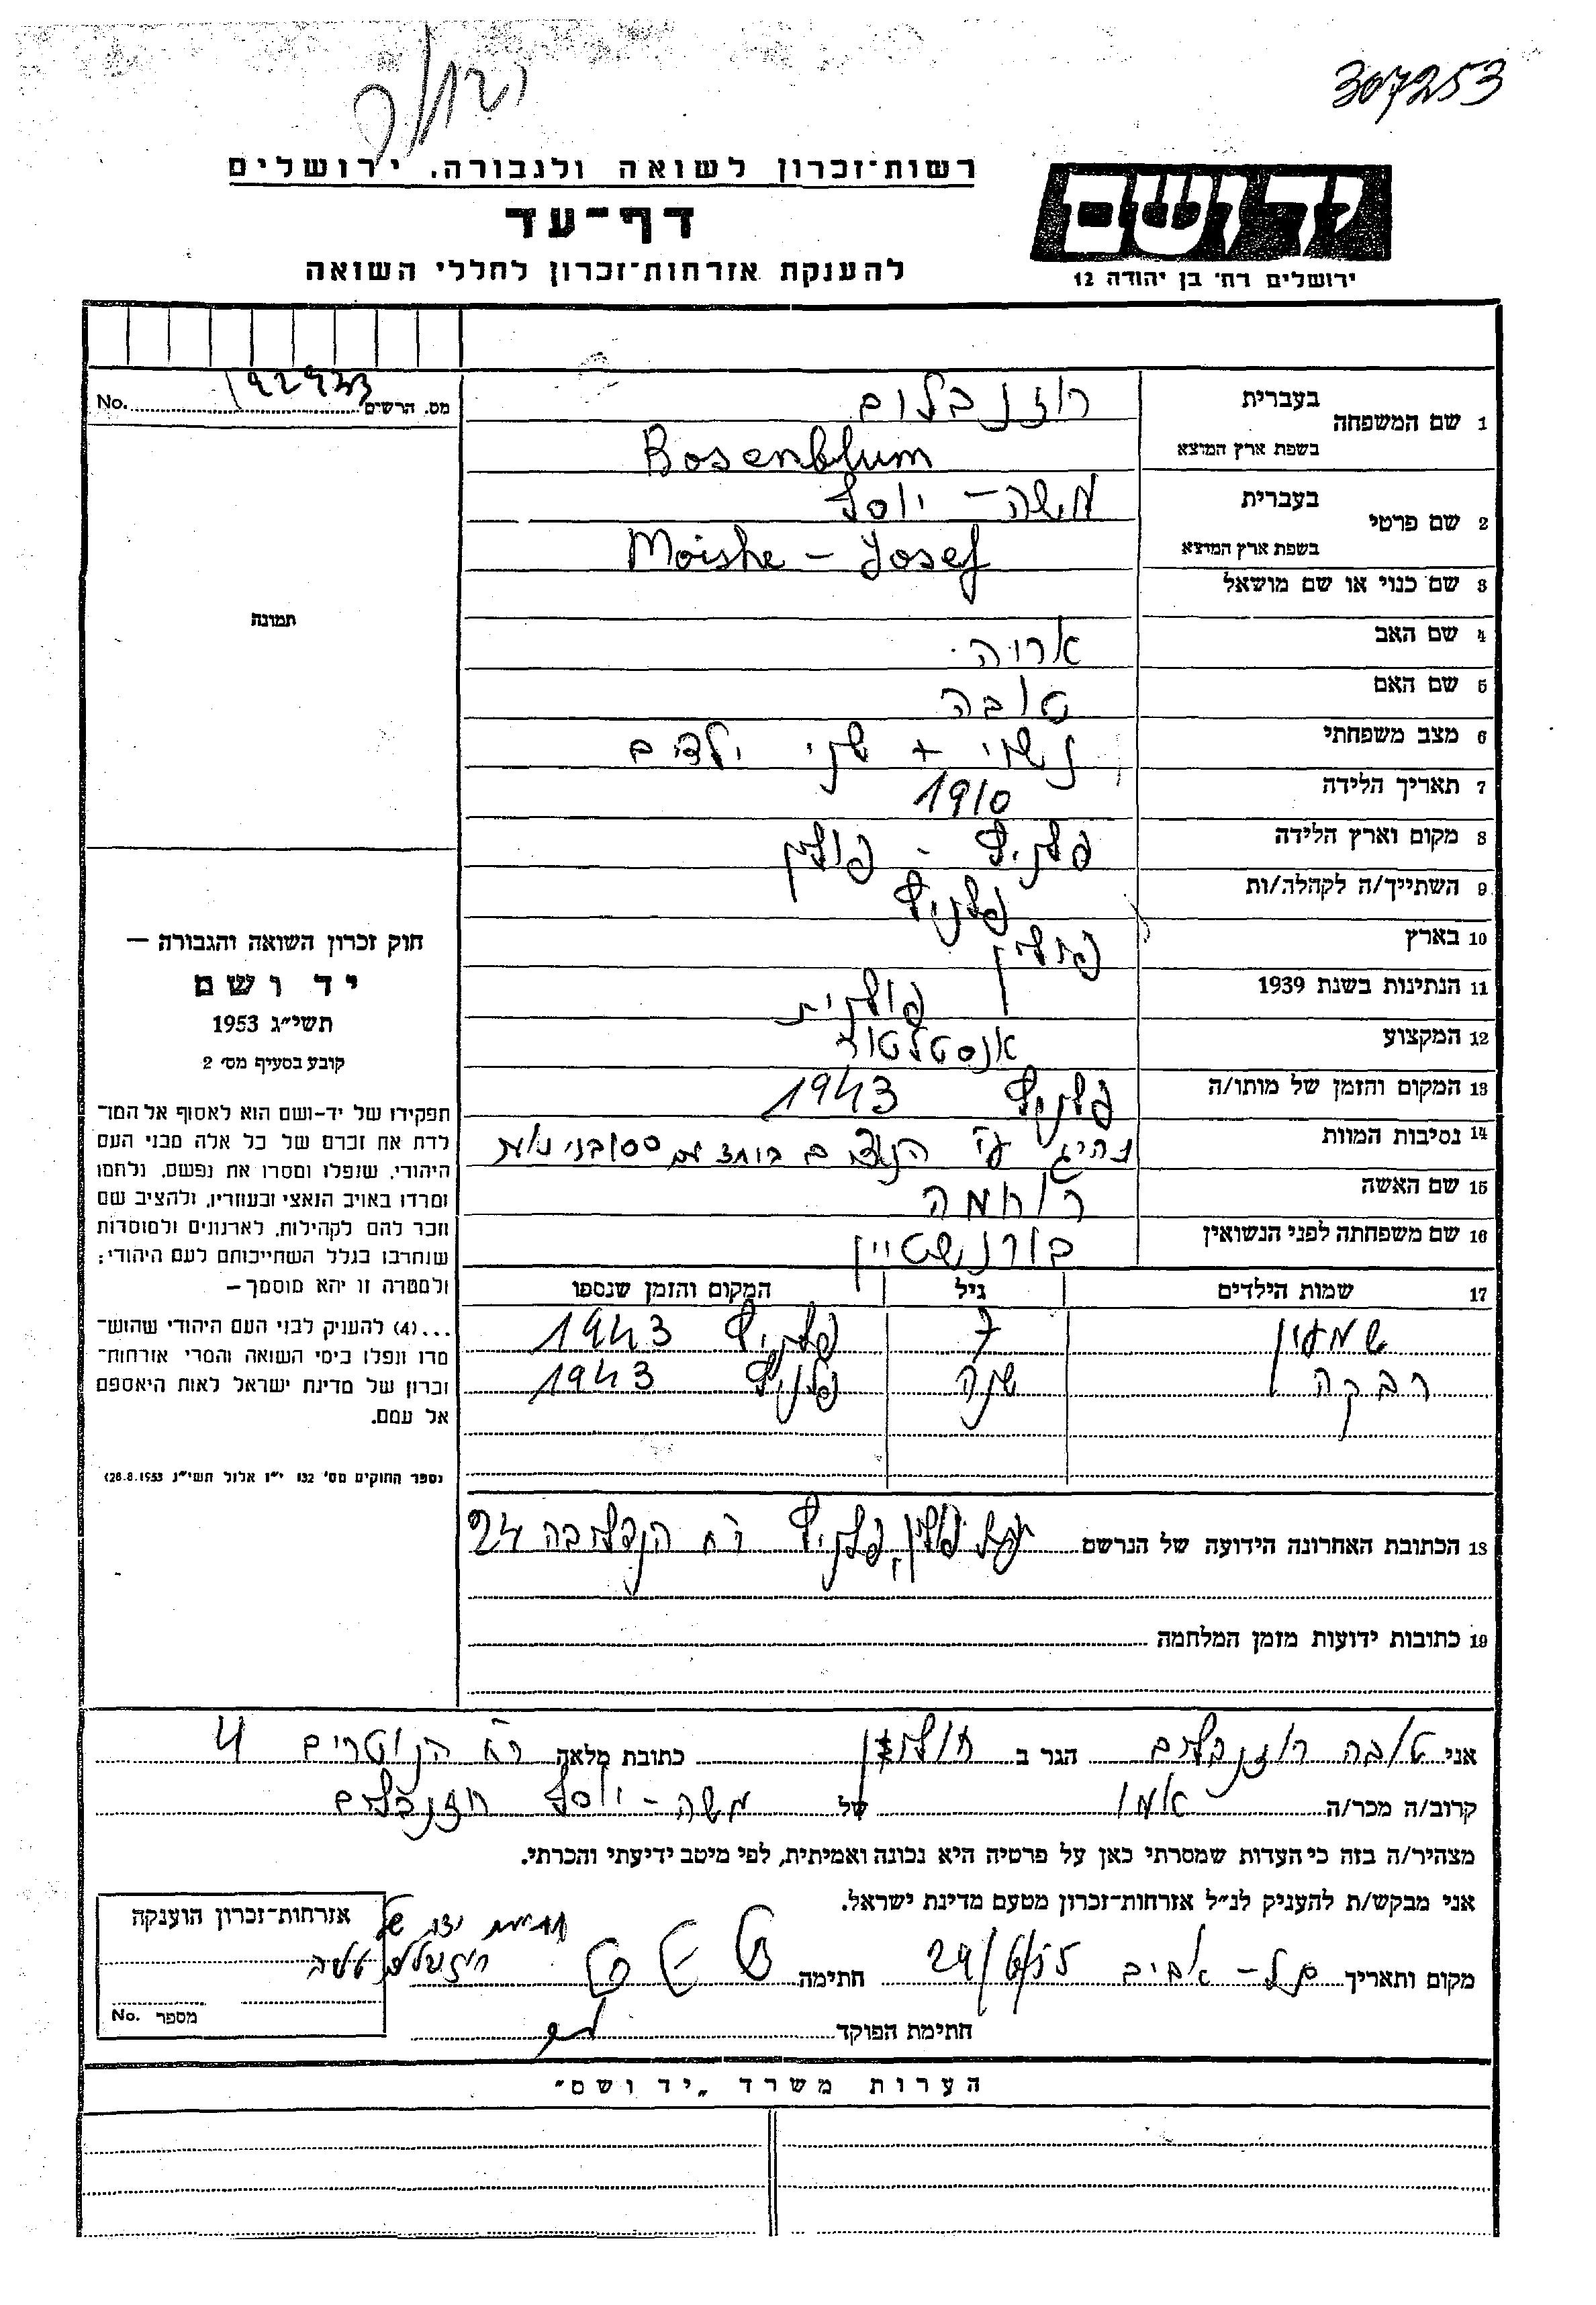 307253
רשות־זכרון לשואה ולגבורה, ירושלים
יד ושם
דף־עד
ירושלים רח' בן יהודה 12
להענקת אזרחות־זכרון לחללי השואה
No. 192933 מס. הרשים
1 שם המשפחה בעברית רוזנבלום
בשפת ארץ המוצא Rosenblum
2 שם פרטי בעברית משה - יוסף
בשפת ארץ המוצא Moishe - Josef
3 שם כנוי או שם מושאל
תמונה
4 שם האב אריה
5 שם האם טובה
6 מצב משפחתי נשוי + שני ילדים
7 תאריך הלידה 1910
8 מקום וארץ הלידה - פולין
9 השתייך/ה לקהלה/ות
10 בארץ פולין
11 הנתינות בשנת 1939 פולנית
12 המקצוע אנסטלטור
13 המקום והזמן של מותו/ה 1943
14 נסיבות המוות נהרג ע"י הנאצים ביחד עם
15 שם האשה רוחמה
16 שם משפחתה לפני הנשואין בורנשטיין
17 שמות הילדים גיל המקום והזמן שנספו
שמעון 7 1943
רבקה שנה 1943
חוק זכרון השואה והגבורה –
יד ושם
תשי"ג 1953
קובע בסעיף מס' 2
תפקידו של יד-ושם הוא לאסוף אל המו־
לדת את זכרם של כל אלה מבני העם
היהודי, שנפלו ומסרו את נפשם, נלחמו
ומרדו באויב הנאצי ובעוזריו, ולהציב שם
וזכר להם לקהילות, לארגונים ולמוסדות
שנחרבו בגלל השתייכותם לעם היהודי;
ולמטרה זו יהא מוסמך –
...(4) להעניק לבני העם היהודי שהוש־
מדו ונפלו בימי השואה והמרי אזרחות־
זכרון של מדינת ישראל לאות היאספם
אל עמם.
(ספר החוקים מס' 132 י"ז אלול תשי"ג 28.8.1953)
18 הכתובת האחרונה הידועה של הנרשם פולין, רח 24
19 כתובות ידועות מזמן המלחמה
אני טובה רוזנבלום הגר ב חולון כתובת מלאה רח הנוטרים 4
קרוב/ה מכר/ה אמו של משה - יוסף רוזנבלום
מצהיר/ה בזה כי העדות שמסרתי כאן על פרטיה היא נכונה ואמיתית, לפי מיטב ידיעתי והכרתי.
אני מבקש/ת להעניק לנ"ל אזרחות־זכרון מטעם מדינת ישראל.
מקום ותאריך תל - אביב 29/6/55 חתימה
חתימת ידה של
חתימת הפוקד
אזרחות־זכרון הוענקה
No. מספר
הערות משרד „יד ושם"